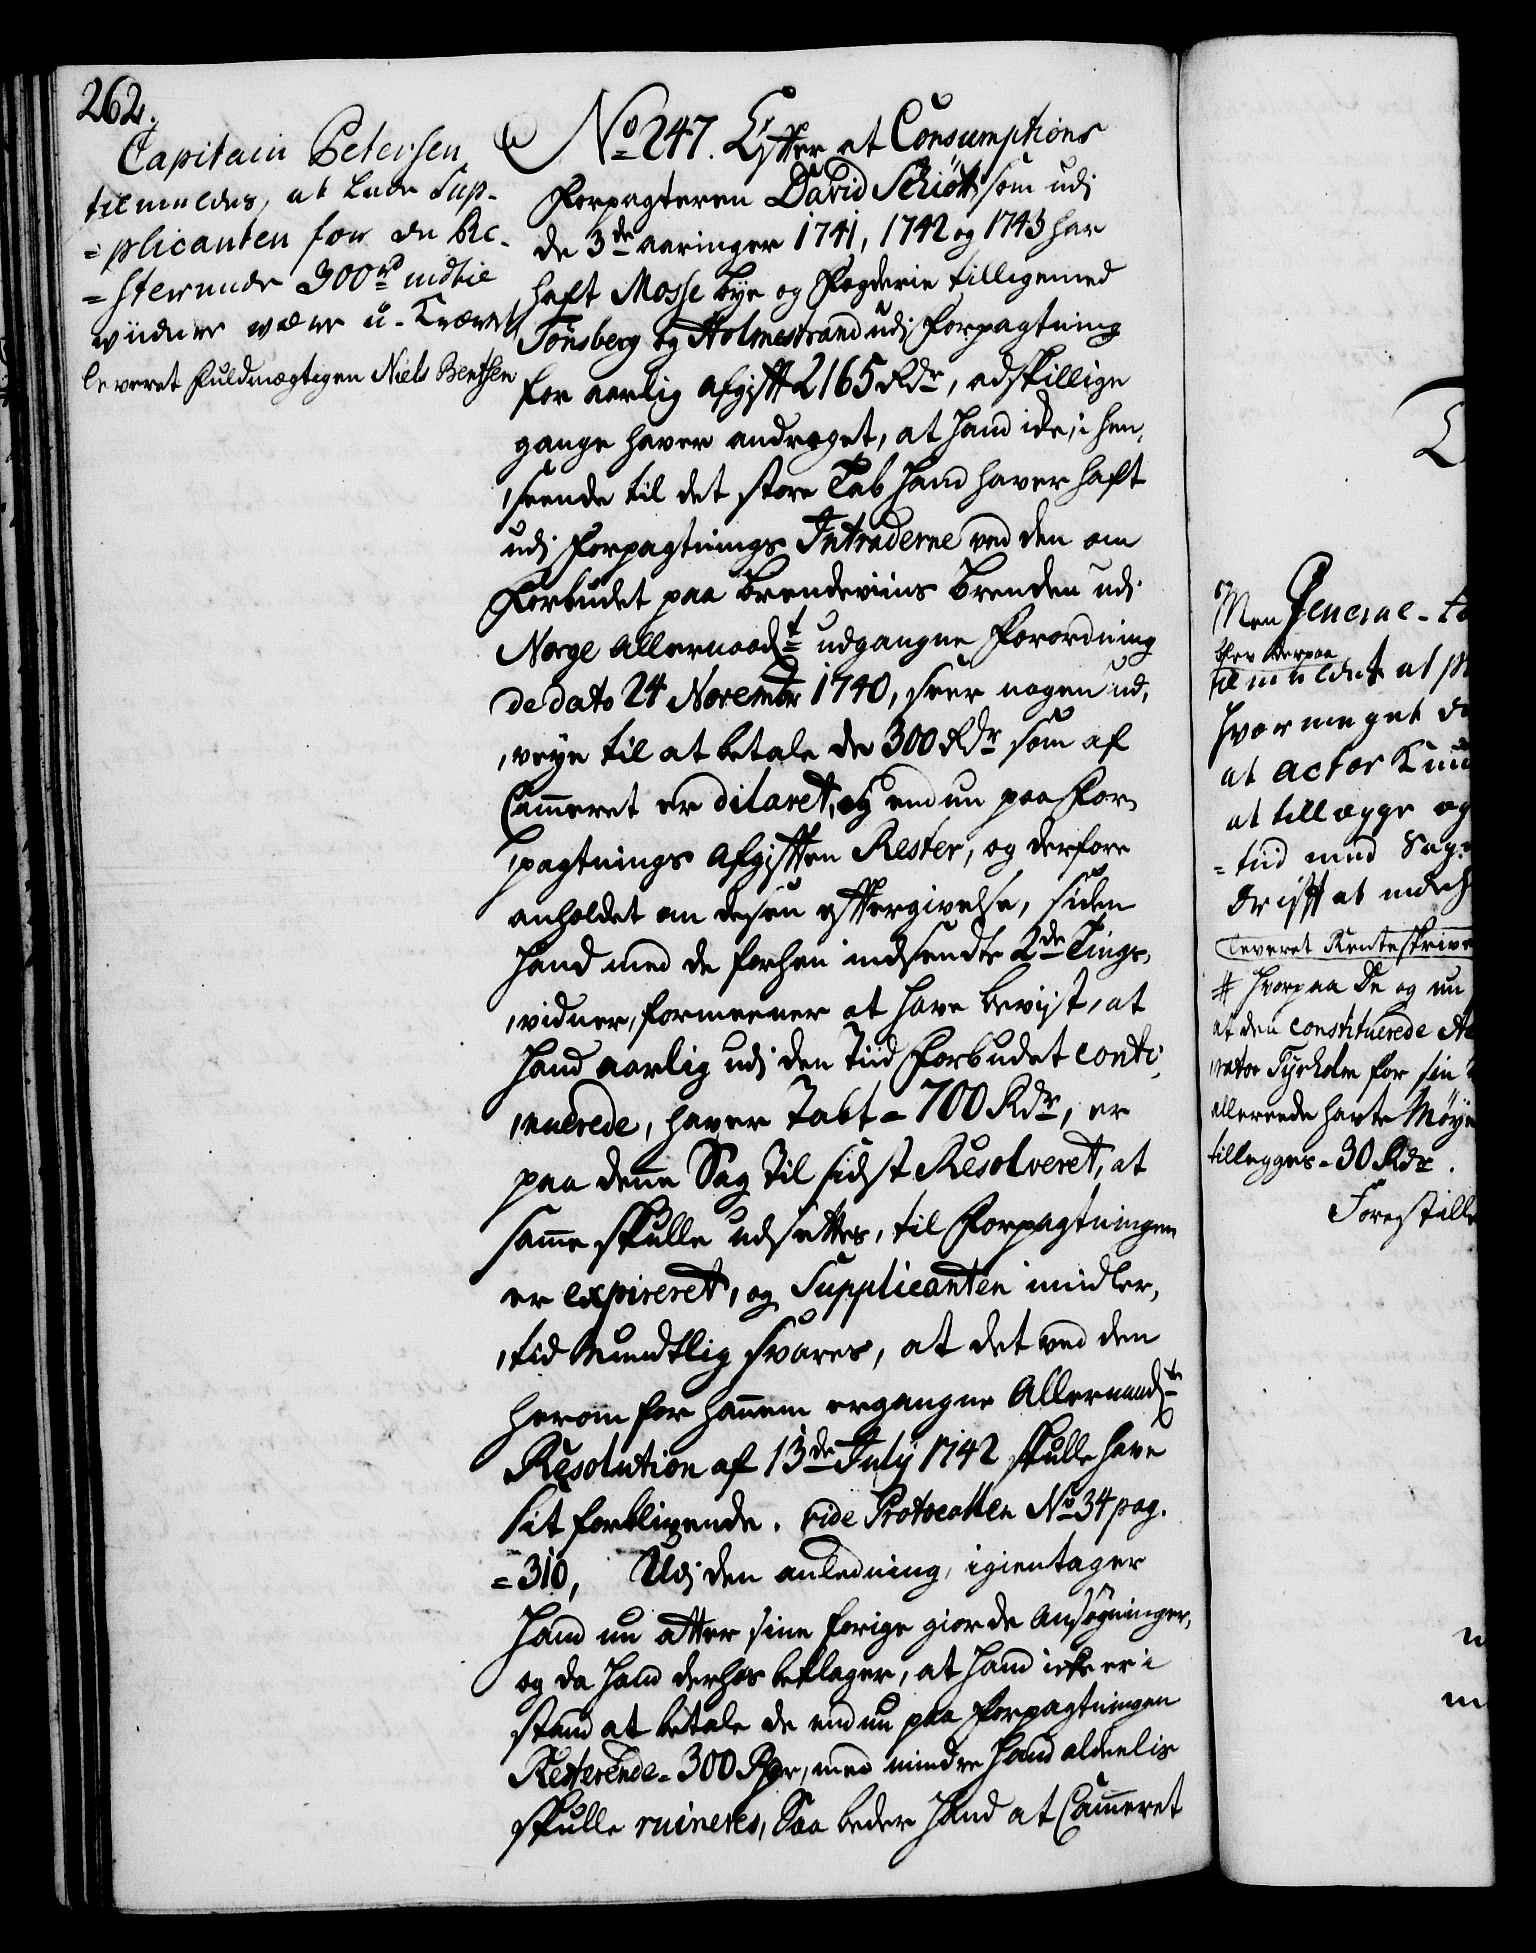 262.
Capitain Petersen
tilmeldes, at lade Sup-
=plicanten for de Re-
=sterende 300rd indtil
viidere være u-Krævet
leveret fuldmægtigen Niels Bentsen
No 247. Efter at Consumptions
Forpagteren David Schiøtt som udj
de 3de aaringer 1741, 1742 og 1743 har
haft Mosse bye og Fogderie tilligemed
Tønsberg og Holmestrand udj forpagtning
for aarlig afgifft 2165 Rdr, adskillige
gange haver andraget, at hand icke, i hen,
,seende til det store Tab hand haver haft
udj forpagtnings Intraderne ved den om
Forbudet paa brendeviins brenden udj
Norge allernaadt udgangne Forordning
de dato 24 Novembr 1740, seer nogen ud,
,veye til at betale de 300 Rdr som af
Cammeret er dilaret, og endnu paa For,
,pagtnings Afgifften Rester, og derfore
anholdet om desen efftergivelse, siden
hand med de forhen indsendte 2de Tings,
,vidner, formeener at have beviist, at
hand aarlig udj den Tiid Forbudet conti,
,nuerede, haver Tabt = 700 Rdr, er
paa denne Sag til sidst Resolveret, at
samme skulle udsettes, til Forpagtningen
er expireret, og Supplicanten imidler,
,tid mundtlig svares, at det ved den
herom for hannem ergangne Allernaadte
Resolution af 13de July 1742 skulle have
sit forblivende. vide Protocollen No 34 pag.
=310, Udj den anledning, igientager
hand nu atter sine forige giorde ansøgninger,
og da hand derhos beklager, at hand icke er i
stand at betale de endnu paa Forpagtningen
Resterende = 300 Rdr, med mindre hand aldeelis
skulle ruineres, Saa beder hand at Cammeret
Men General-to
blev derpaa
tilmeldet at
hvormeget
at actor
at tillægge og
=tiid med Sag
drifft at
leveret Renteskrive
# hvorpaa De og nu
at den constituerede
,rator Tyrholm for sin
allereede hafte Møye
tillegges = 30 Rdr.
Forestille